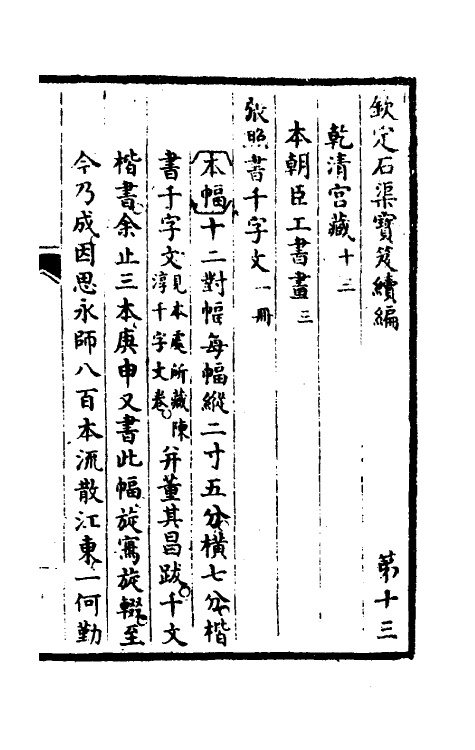 欽定石渠寶笈續編 第十三
乾清宮藏十三
本朝臣工書畫三
張照書千字文一冊
本幅十二對幅每幅縱二寸五分橫七分楷
書千字文見本處所藏陳淳千字文卷并董其昌跋千文
楷書余止三本庚申又書此幅旋寫旋輟至
今乃成因思永師八百本流散江東一何勤